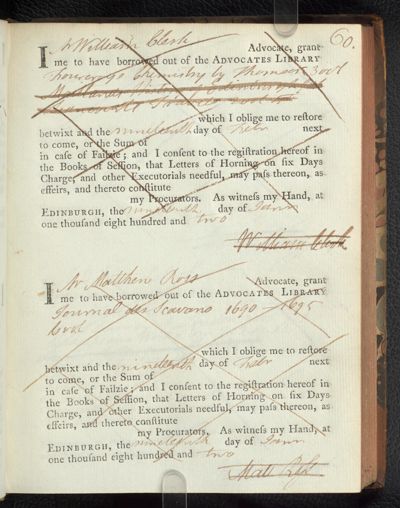 60.
I Mr William Clark Advocate, grant
me to have borrowed out of the ADVOCATES LIBRARY
Chemistry by Thomson 3 vol
which I oblige me to reſtore
betwixt and the nineteenth day of Febr next
to come, or the Sum of
in caſe of Failzie; and I conſent to the regiſtration hereof in
the Books of Seſſion, that Letters of Horning on ſix Days
Charge, and other Executorials needful, may paſs thereon, as
effeirs, and thereto conſtitute
my Procurators. As witneſs my Hand, at
EDINBURGH, the nineteenth day of Janry
one thouſand eight hundred and two
William Clark
I Mr Matthew Ross Advocate, grant
me to have borrowed out of the ADVOCATES LIBRARY
Journal des Scavans 1690 - 1695
which I oblige me to reſtore
betwixt and the nineteenth day of Febr next
to come, or the Sum of
in caſe of Failzie; and I conſent to the regiſtration hereof in
the Books of Seſſion, that Letters of Horning on ſix Days
Charge, and other Executorials needful, may paſs thereon, as
effeirs, and thereto conſtitute
my Procurators. As witneſs my Hand, at
EDINBURGH, the nineteenth day of Janry
one thouſand eight hundred and two
Matt Ross